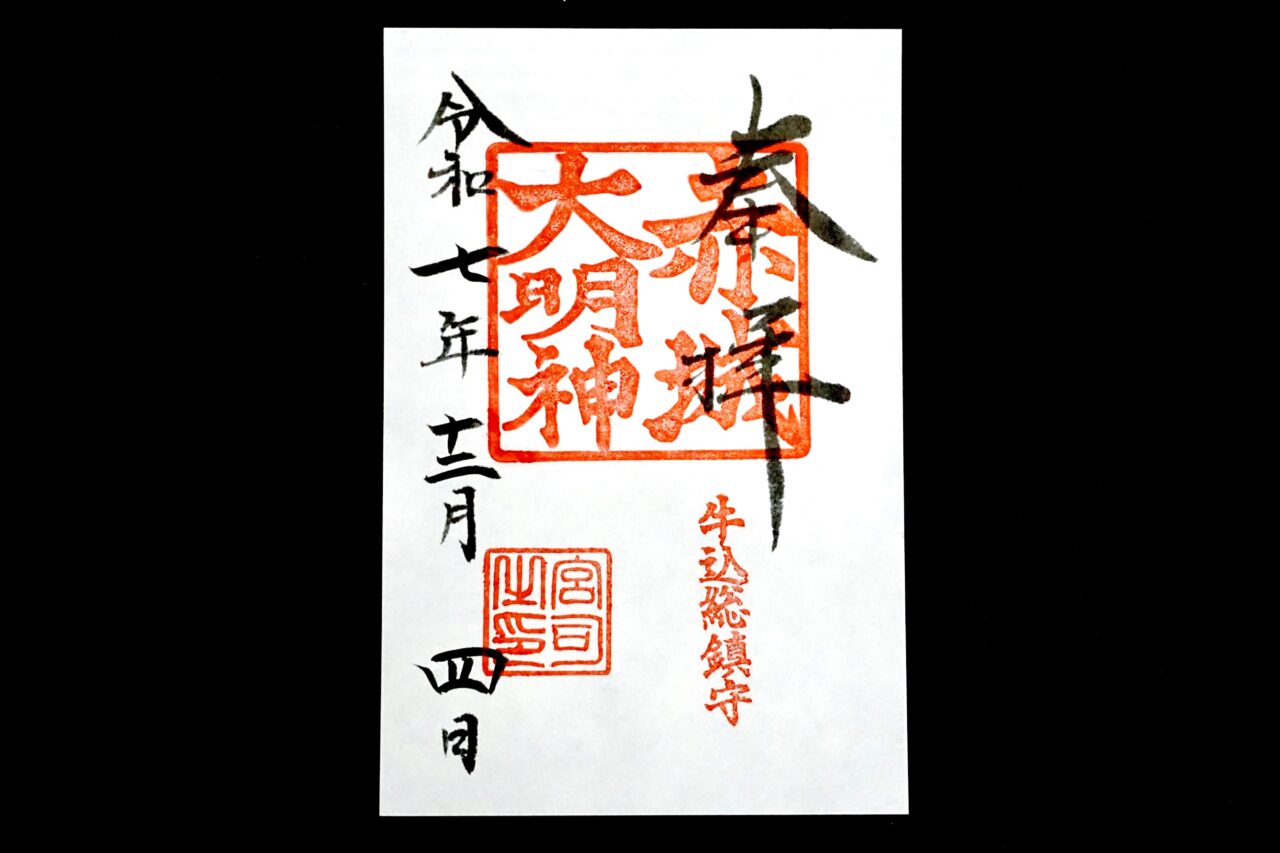 奉拝
赤城
大明神
牛込総鎮守
宮司
之印
令和七年十二月四日